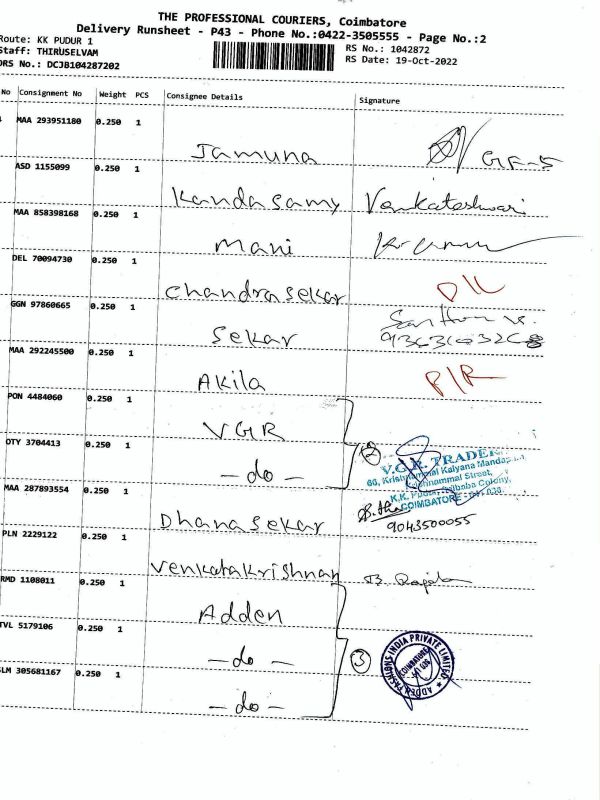 THE PROFESSIONAL COURIERS, Coimbatore
Delivery Runsheet - P43 - Phone No.:0422-3505555 - Page No.:2
Route: KK PUDUR 1 RS No.: 1042872
Staff: THIRUSELVAM RS Date: 19-Oct-2022
DRS No.: DCJB104287202
No Consignment No Weight PCS Consignee Details Signature
MAA 293951180 0.250 1
Jamuna
ASD 1155099 0.250 1
Kandasamy Venkateshwari
MAA 858398168 0.250 1
Mani
DEL 70094730 0.250 1
Chandrasekar D/L
GGN 97860665 0.250 1
Sekar
MAA 292245500 0.250 1
Akila P/R
PON 4484060 0.250 1
VGR
OTY 3704413 0.250 1
-do- 2
V.G.R. TRADER
66, Krishnammal Kalyana Mandapam
Krishnammal Street,
K.K. Pudur, Saibaba Colony,
COIMBATORE
MAA 287893554 0.250 1
Dhanasekar
9043500055
PLN 2229122 0.250 1
Venkatakrishnan
RMD 1108011 0.250 1
Adden
TVL 5179106 0.250 1
-do- 3
ADDEN FASHIONS INDIA PRIVATE LIMITED
COIMBATORE
SLM 305681167 0.250 1
-do-